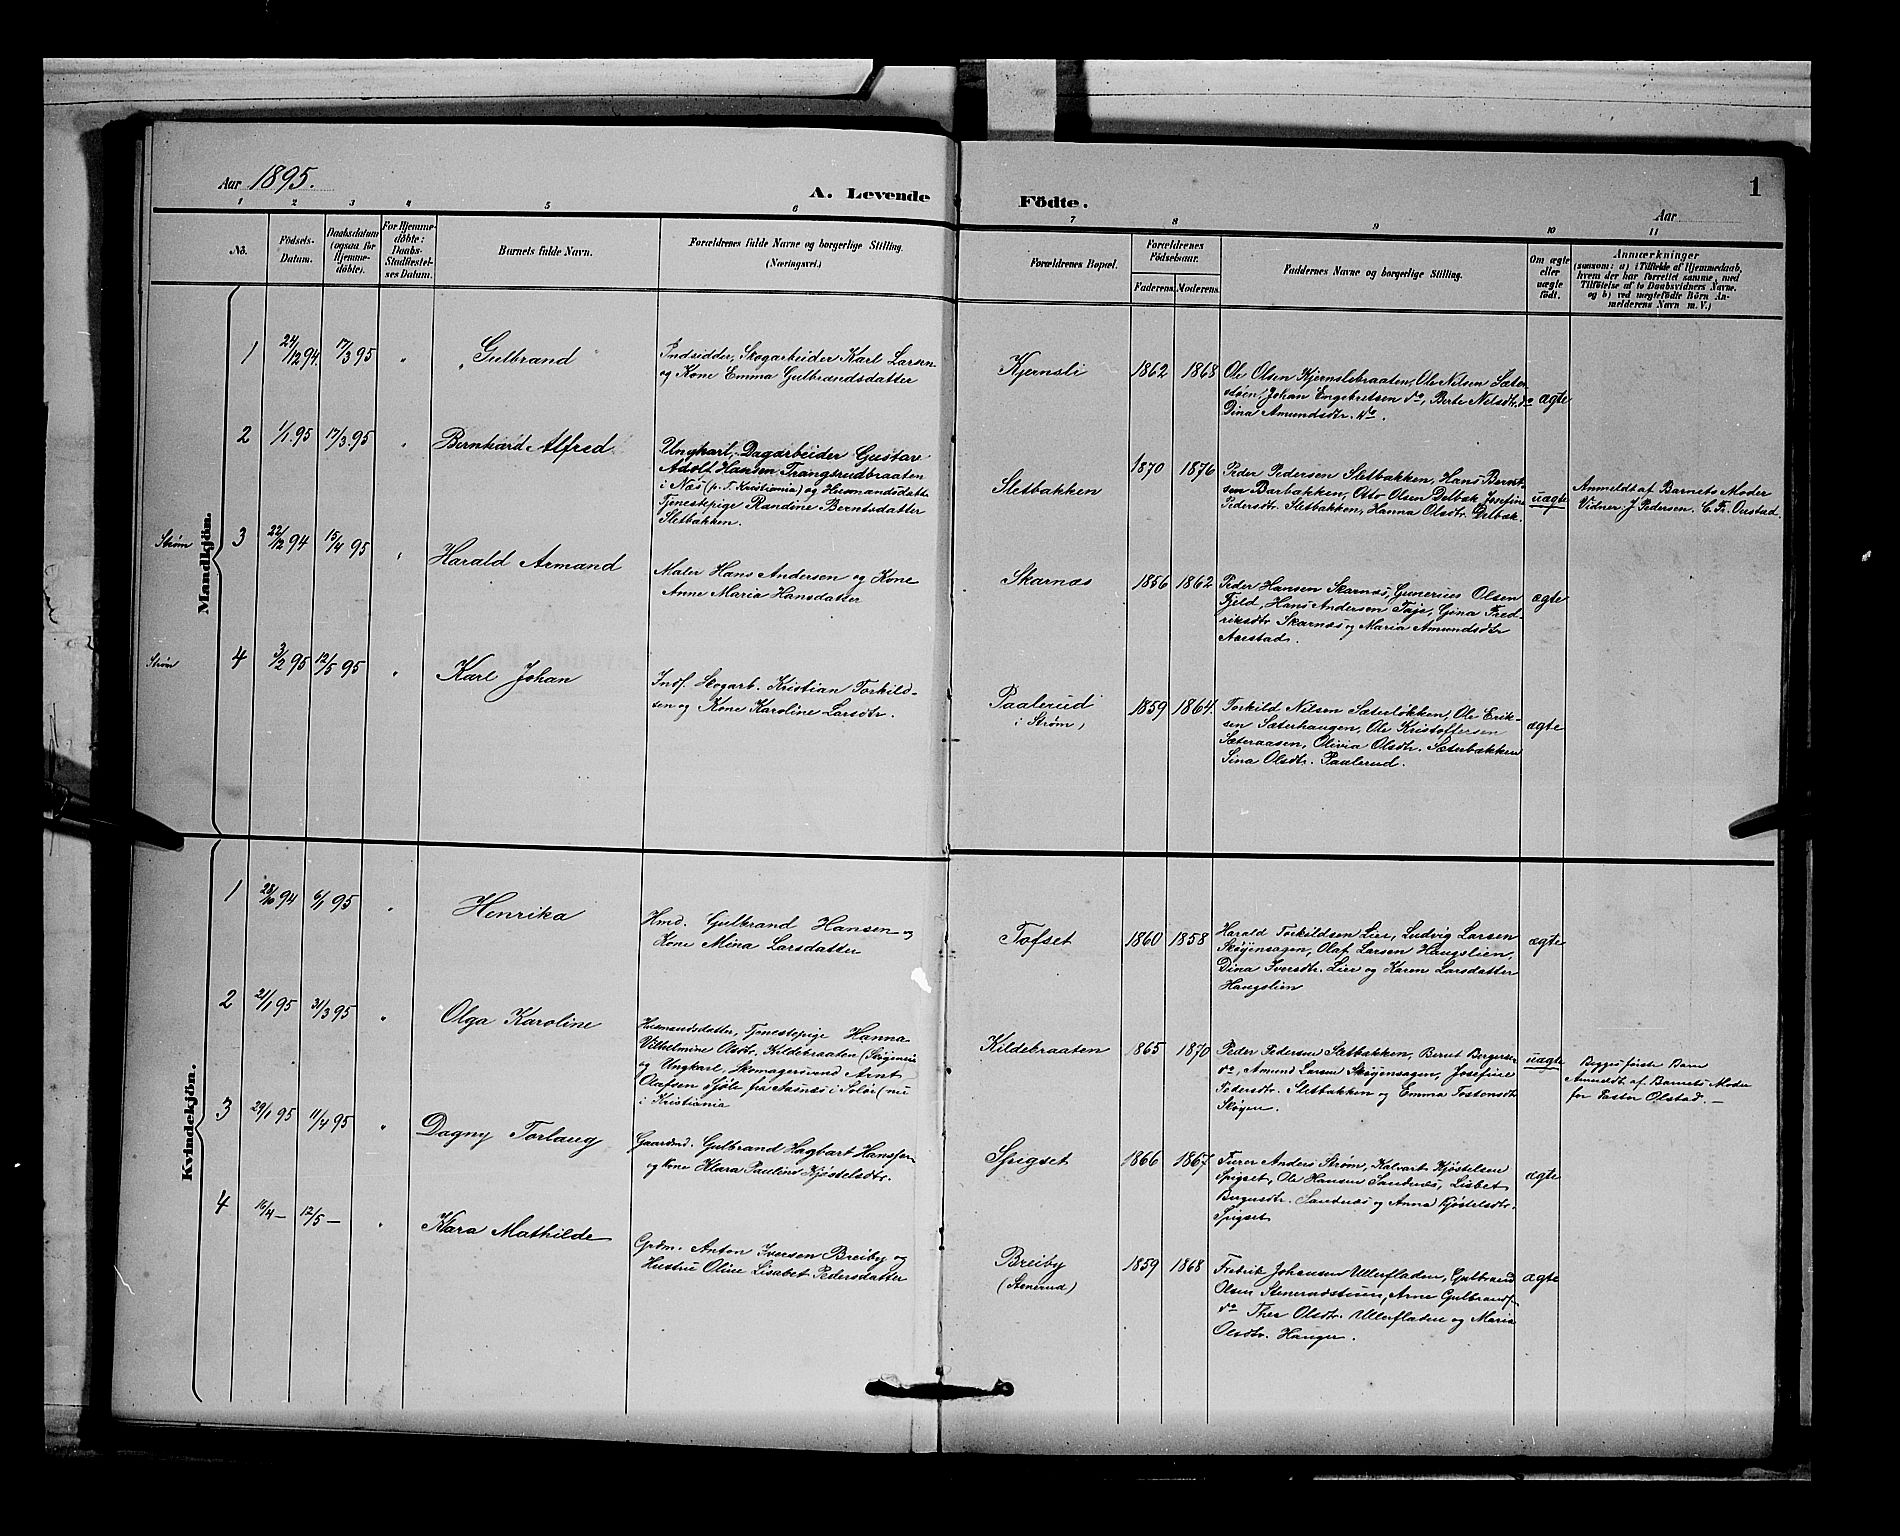 Aar 1895.
A. Levende
Födte.
1
Aar
1 2 3 4 5 6 7 8 9 10 11
No.
Födsels-
Datum.
Daabsdatum
(ogsaa for
Hjemme-
döbte).
For Hjemme-
döbte:
Daabs-
Stadfæstel-
ses Datum.
Barnets fulde Navn.
Forældrenes fulde Navne og borgerlige Stilling.
(Næringsvei.)
Forældrenes Bopæl.
Forældrenes
Födselsaar.
Faderens. Moderens.
Faddernes Navne og borgerlige Stilling.
Om ægte
eller
uægte
födt.
Anmærkninger
(saasom: a) i Tilfælde af Hjemmedaab,
hvem der har forrettet samme, med
Tilföielse af to Daabsvidners Navne.
og b) ved uægtefödte Börn An-
melderens Navn m. V.)
Mandkjön.
1 24/12 94. 17/3 95 " Gulbrand
Indsidder, Skogarbeider Karl Larsen
og Kone Emma Gulbrandsdatter
Kjernsli 1862 1868
Ole Olsen Kjernslibraaten, Ole Nilsen Sæter-
støen, Johan Engebretsen do, Berte Nilsdtr. do
Dina Amundsdtr. do
ægte
2 1/1.95 17/3.95 " Bernhard Alfred
Ungkarl, Dagarbeider Gustav
Adolf Hansen Trangsrudbraaten
i Næs (p. T. Kristiania) og Husmandsdatter
Tjenestepige Randine Berntsdatter
Sletbakken.
Sletbakken 1870 1876
Peder Pedersen Sletbakken, Hans Bernt-
sen Barbakken, Otto Olsen Delbæk, Josefine
Pedersdtr. Sletbakken, Hanna Olsdtr. Delbæk.
uægte
Anmeldt af Barnets Moder
Vidner J Pedersen. C. Fr. Onstad.
Strøm 3 22/12 94 15/4 95 " Harald Armand
Maler Hans Andersen og Kone
Anne Maria Hansdatter
Skarnæs 1856 1862
Peder Hansen Skarnæs, Gunerius Olsen
Fjeld, Hans Andersen Taje, Gina Fred-
riksdtr Skarnæs og Maria Amundsdtr
Aarstad.
ægte
Strøm 4 3/2 95 12/5 95 " Karl Johan
Inds. Skogarb. Kristian Torkild-
sen og Kone Karoline Larsdtr.
Paalerud
i Strøm,
1859 1864.
Torkild Nilsen Sæterløkken, Ole Erik-
sen Sæterhaugen, Ole Kristoffersen
Sæteraasen, Olivia Olsdtr. Sæterbakken
Sina Olsdtr. Paalerud.
ægte
Kvindekjön.
1 28/10 94 6/1 95 " Henrika
Hmd. Gulbrand Hansen og
Kone Mina Larsdatter
Tofset 1860 1858
Harald Torkildsen Lier, Ludvig Larsen
Skøyensagen, Olaf Larsen Haugslien,
Dina Iversdtr. Lier og Karen Larsdatter
Haugslien
ægte
2 21/1 95 31/3 95 " Olga Karoline
Husmandsdatter, Tjenestepige Hanna
Vilhelmine Olsdtr. Kildebraaten
og Ungkarl, Skomagersvend Arnt
Olafsen Sjøli fra Aasnæs i Solør (nu
i Kristiania
Kildebraaten 1865 1870
Peder Pedersen Sletbakken, Bernt Bergersen
do, Amund Larsen Skøyensagen, Josefine
Pedersdtr. Sletbakken og Emma Tostensdtr
Skøyen.
uægte
Begges første Barn
Anmeldt af Barnets Moder
for Pastor Olstad. —
3 29/1 95 11/4 95 " Dagny Torlaug
Gaardmd. Gulbrand Hagbart Hanssen
og Kone Klara Pauline Kjøstelsdtr.
Spigset 1866 1867
Furer Anders Strøm, Halvart Kjøstelsen
Spigset, Ole Hansen Sandnæs, Lisbet
Bergersdtr. Sandnæs og Anna Kjøstelsdtr.
Spigset
ægte
4 16/4 — 12/5 — " Klara Mathilde
Grdm. Anton Iversen Breiby og
Hustru Oline Lisabet Pedersdatter
Breiby
(Stenerud)
1859 1868
Fredrik Johansen Ullerfladen, Gulbrand
Olsen Stenerudstuen, Arne Gulbrands.
do Thea Olsdtr. Ullerfladen og Maria
Olsdtr. Hauger.
ægte